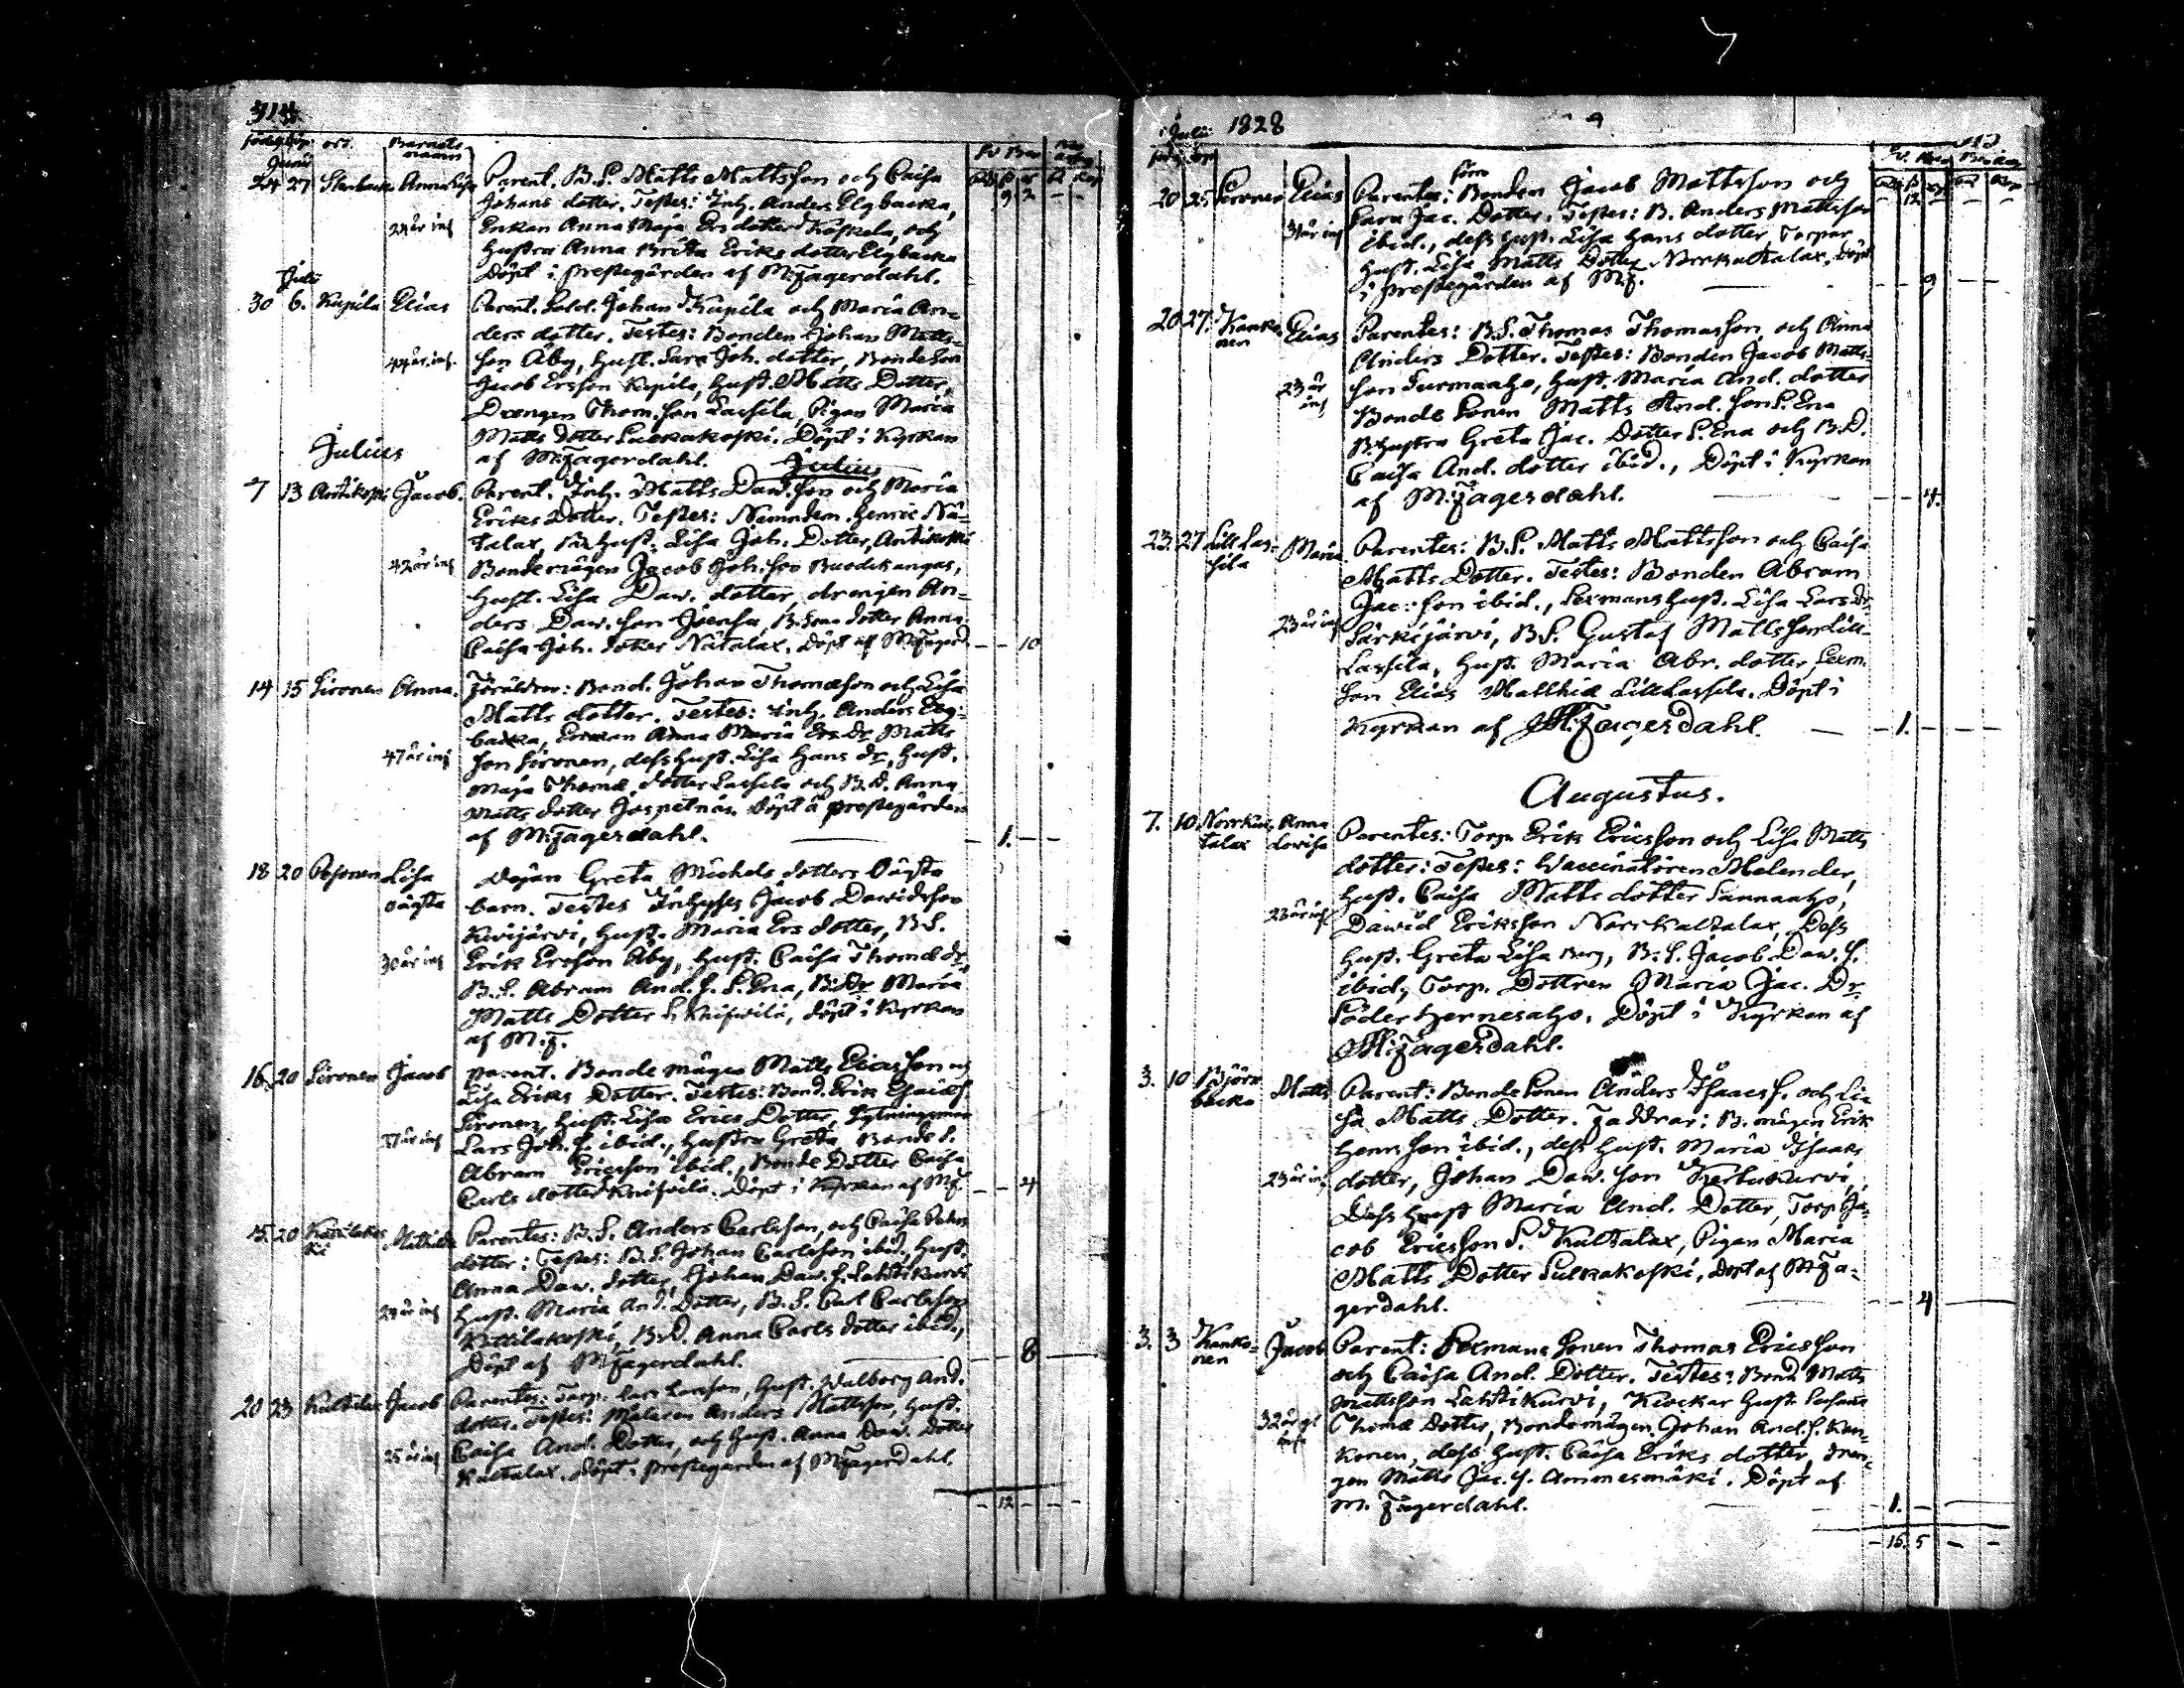 314
född döp ort. Barnets namn
Junii
24 27 Stenbacka Anna Lisa Parent. B.S. Matts Mattsson och Caisa
Johans dotter. Testes: Inh. Anders Elgbacka,
24 år inh Enkan Anna Maja Ers dotter Koskela, och
Hustru Anna Brita Eriks dotter Elgbacka
Döpt i prestegården af M. Fagerdahl.
Julii
30 6. Kupila Elias Parent. Sold. Johan Kupila och Maria An-
ders dotter. Testes: Bonden Johan Matts-
44 år inh. son Åby, Hust. Sara Joh. dotter, Bonde Son
Jacob Ersson Kupila, Hust. Matts Dotter,
Drengen Thom. son Lassila, Pigan Maria
Matts dotter Sulkakoski. Döpt i Kyrkan
af M. Fagerdahl.
Julius Julius
7 13 Antikoski Jacob. Parent. Inh. Matts Daw. son och Maria
Eriks Dotter. Testes: Nemndem. Henric Nä-
talax, B. Hust. Lisa Joh. Dotter, Antikoski
42 år inh Bondemågen Jacob Joh. son Buodikangas,
Hust. Lisa Daw. dotter, drengen An-
ders Daw. son Joensu, B. Sons dotter Anna
Caisa Joh. dotter Nätalax. Döpt af M. Fagerd. — — 10
14 15 Sironen Anna. Föräldrar: Bond. Johan Thomasson och Lisa
Matts dotter. Testes: Inh. Anders Elg-
backa, Enkan Anna Maria Ers Dr. Matts
47 år inh son Sironen, dess Hust. Lisa Hans Dr, Hust.
Maja Thomæ dotter Lassila och B.D. Anna
Matts dotter Döpt å prestegården
af M. Fagerdahl. — 1. — —
18 20 Pesonen Lisa oägta Dejan Greta Michels dotters Oägta
barn. Testes Inhyses Jacob Davidsson
Kivijärvi, Hust. Maria Ers dotter, B.S.
30 år inh Erik Ersson Åby, Hust. Caisa Thomæ dr,
B.S. Abram And. S. S. Ena, B. Dr Maria
Matts Dotter S. Knifvilä, döpt i Kyrkan
af M.F.
16 20 Sironen Jacob Parent. Bonde mågen Matts Eliasson och
Lisa Eriks Dotter. Testes: Bond. Erik
Sironen, Hust. Lisa Erics Dotter, Sytningsman
37 år inh Lars Joh. S. ibid., Hustru Greta Bonde S.
Abram Ericsson ibid., Bonde Dotter Caisa
Carls dotter Knifvilä. Döpt i Kyrkan af M.F. — — 4
15 20 Kattilakoski Mathilda Parentes: B.S. Anders Carlsson, och Caisa Johns
dotter: Testes: B.S. Johan Carlsson ibid., Hust.
Anna Daw. dotter, Johan Daw. S. Lahtikurvi
24 år inh Hust. Maria And. Dotter, B.S. Carl Carlsson
Kattilakoski, B.D. Anna Carls dotter ibid.,
Döpt af M. Fagerdahl. — 8 —
20 23 Kultalax Jacob Parentes: Torp. Lars Larsson, Hust. Walborg And.
dotter. Testes: Målaren Anders Mattsson, Hust.
25 år inh Caisa And. Dotter, och Hust. Anna Daw. Dotter
Kultalax. Döpt i prestegården af M. Fagerdahl.
— 12 — —
Julii 1828
20 25 Peronen Elias Parentes: förra Bonden Jacob Mattsson och
Sara Jac. Dotter. Testes: B. Anders Mattsson
31 år inh ibid., dess Hust. Lisa Hans dotter, Torpar
Hust. Lisa Matts Dotter Norrkultalax. Döpt
i prestegården af M.F. — — 9 — —
20 27. Kankonen Elias Parentes: B.S. Thomas Thomasson, och Anna
Anders Dotter. Testes: Bonden Jacob Matts-
23 år inh son Surmaaho, Hust. Maria And. dotter
Bonde Sonen Matts And. son S. Ena
B. Hustru Greta Jac. Dotter S. Ena och B.D.
Caisa And. dotter ibid., Döpt i Kyrkan
af M. Fagerdahl. — — 4.
23. 27 Lill Lassila Maria Parentes: B.S. Matts Mattsson och Caisa
Matts Dotter. Testes: Bonden Abram
23 år inh Jac: son ibid., Lexmans Hust. Lisa Lars Dr
Särkijärvi, B.S. Gustaf Mattsson Lill-
Lassila, Hust. Maria Abr. dotter, Lexm.
son Elias Matthiæ Lill Lassila. Döpt i
Kyrkan af M. Fagerdahl. — 1. — — —
Augustus.
7. 10 Norrkultalax Anna Lovisa Parentes: Torp. Erik Ericsson och Lisa Matts
dotter: Testes: Vaccinatören Melender,
Hust. Caisa Matts dotter Sannaaho,
23 år inh David Eriksson Norrkultalax, Dess
Hust. Greta Lisa Berg, B. S. Jacob Daw. S.
ibid., Torp. Dottren Maria Jac. Dr
Söder Hernesaho. Döpt i Kyrkan af
M. Fagerdahl.
3. 10 Björnbacka Matts Parent: Bonde Sonen Anders Isaacs S. och Li-
sa Matts Dotter. Faddrar: B. mågen Erik
Henr. son ibid., dess Hust. Maria Isaaks
23 år inh dotter, Johan Daw. son Kerbukurvi,
Dess Hust Maria And. Dotter, Torp Ja-
cob Ericsson S. Kultalax, Pigan Maria
Matts Dotter Sulkakoski, döpt af M. Fa-
gerdahl. — — 4 —
3. 3 Kankonen Jacob Parent: Lexmans Sonen Thomas Ericsson
och Caisa And. Dotter. Testes: Bond Matts
Mattsson Lahtikurvi, Klockar Hust. Susana
32 år gl inh Thomæ Dotter, Bondemågen Johan And. S. Kan-
konen, dess Hust. Caisa Eriks dotter, dren-
gen Matts Jac. S. Ammesmäki. Döpt af
M. Fagerdahl. — 1. —
— 16. 5 — —